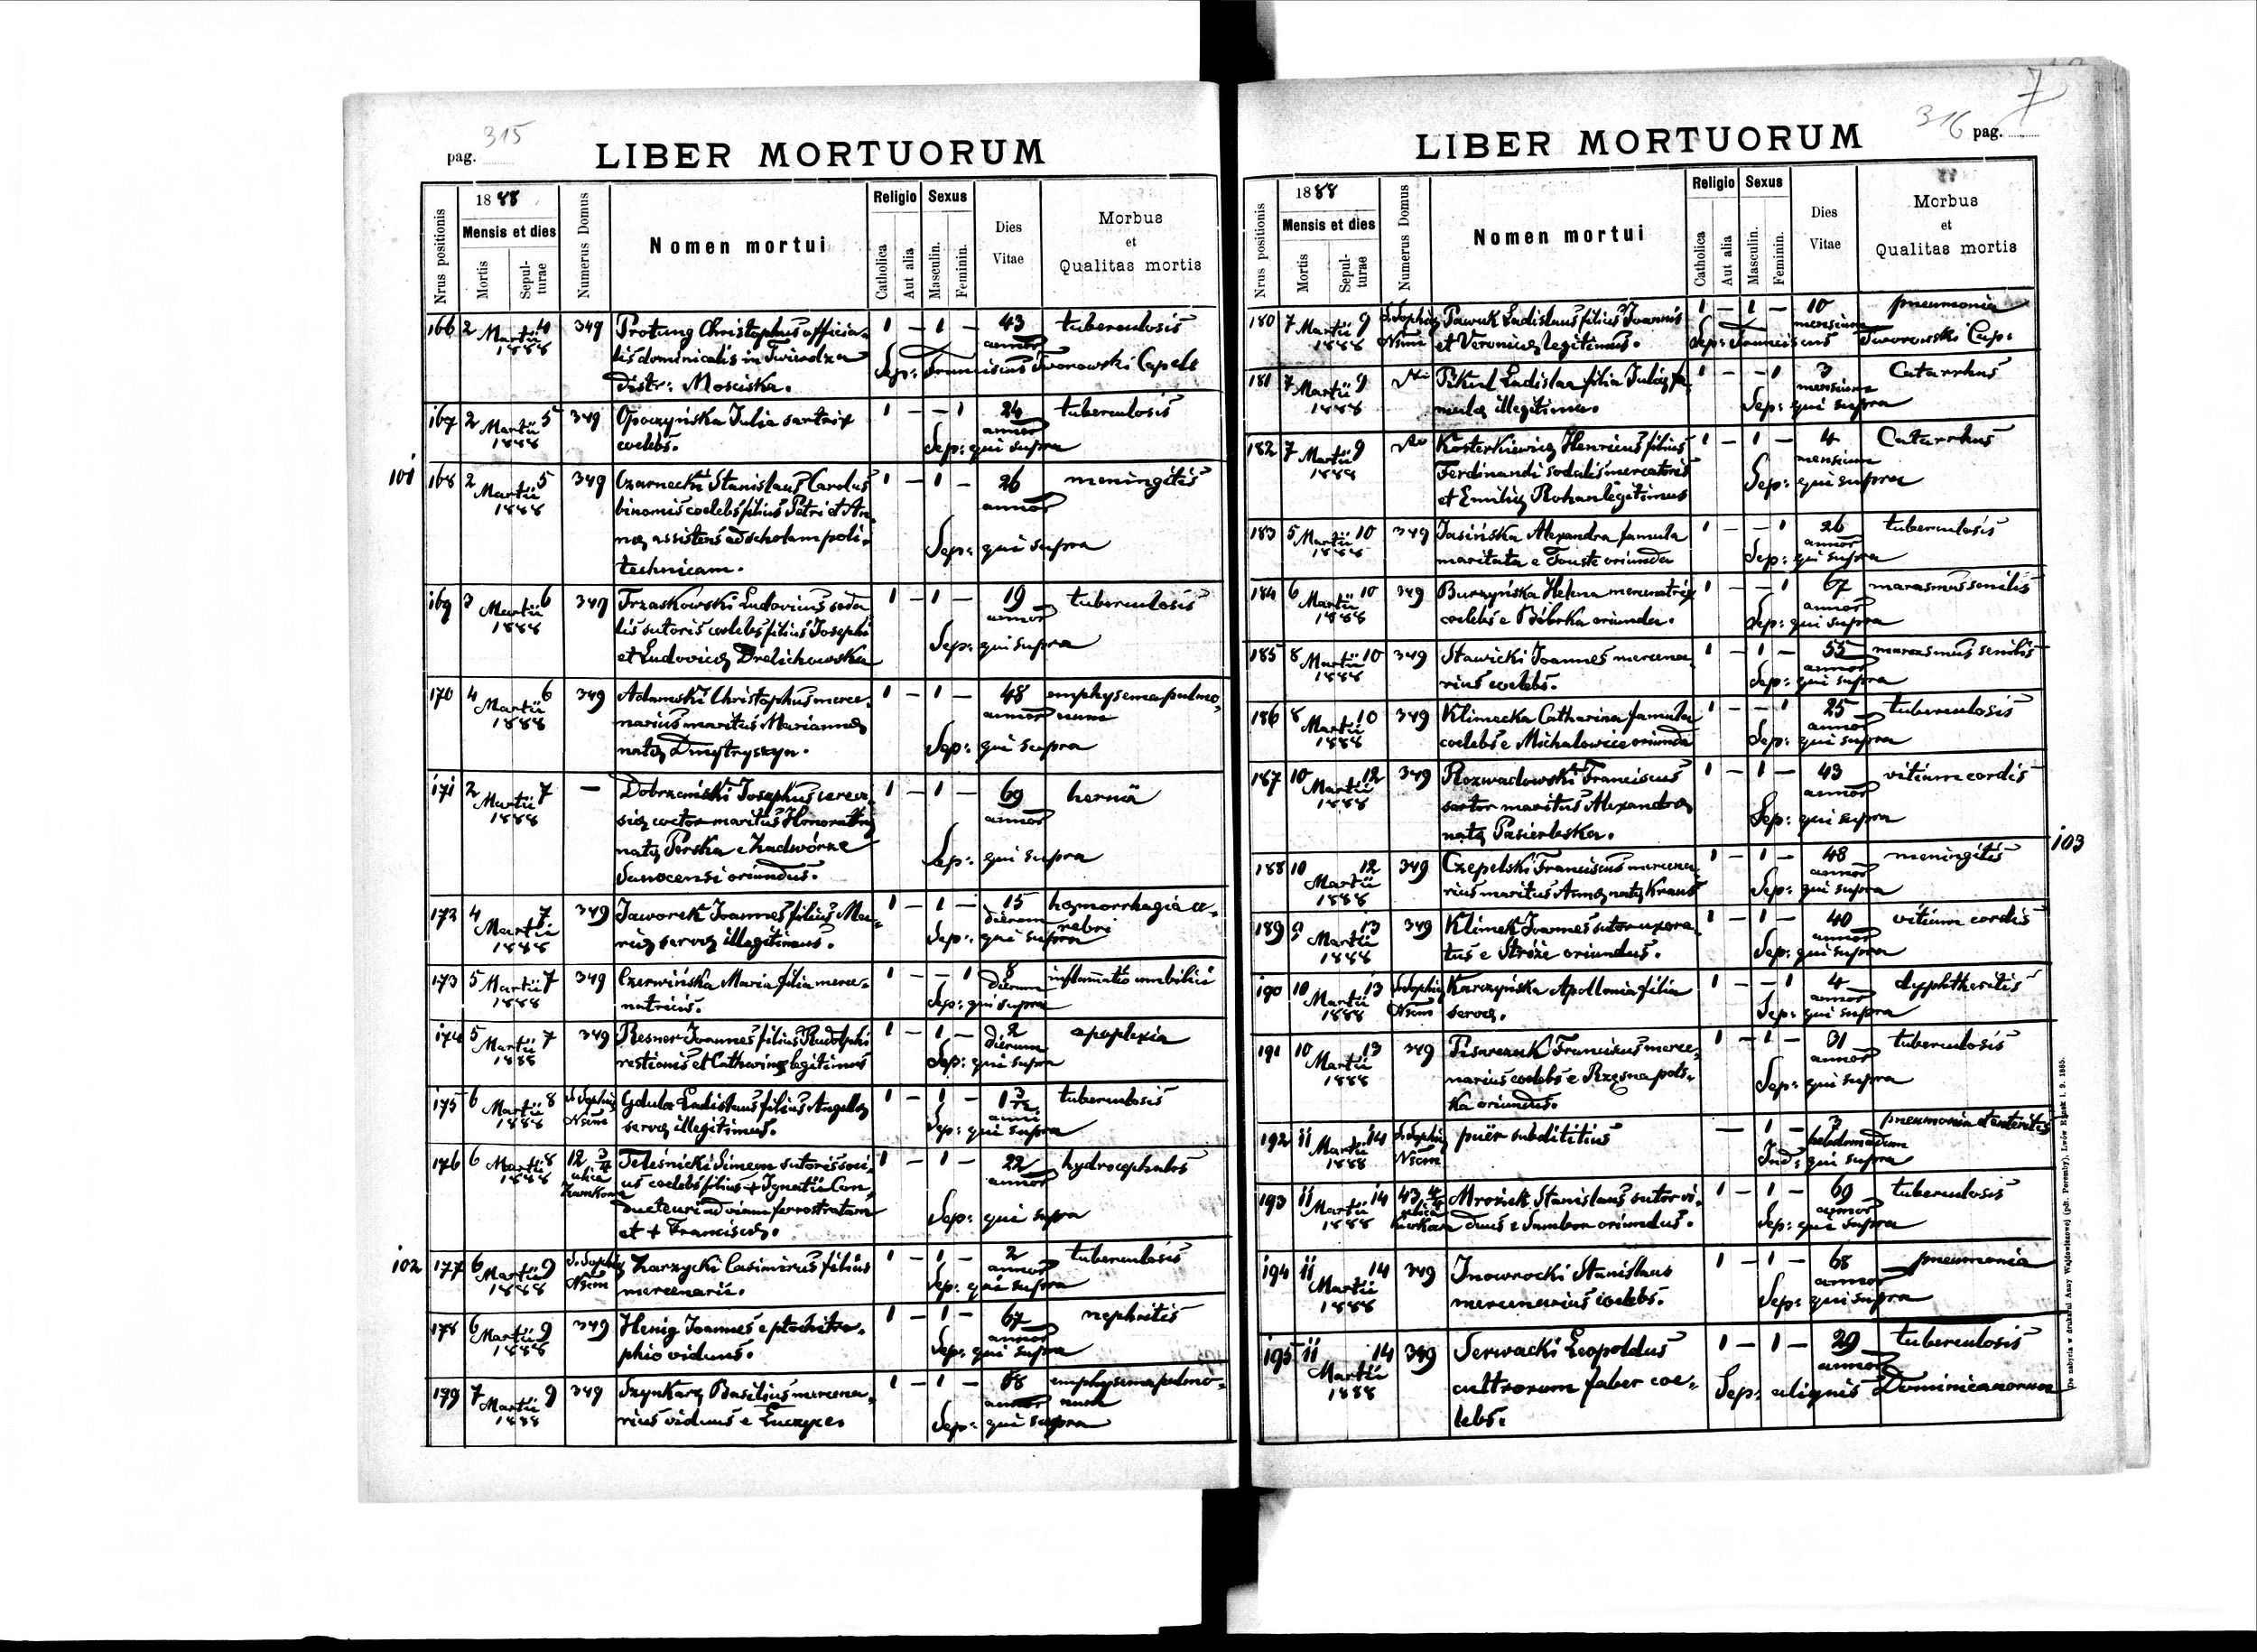 315
pag.
LIBER MORTUORUM
Nrus positionis
1888
Mensis et dies
Mortis
Sepulturae
Numerus Domus
Nomen mortui
Religio
Catholica
Aut alia
Sexus
Masculin.
Feminin.
Dies Vitae
Morbus et Qualitas mortis
166 2 Martii 4 1888 349 Protung Christophus officia- 1 – 1 – 43 annor tuberculosis
lis dominicalis in Twierdza Sep: Franciscus Tworowski Capel
distr: Mosciska.
167 2 Martii 5 1888 349 Opoczyńska Julia sartrix 1 – – 1 24 annor tuberculosis
coelebs. Sep: qui supra
101
168 2 Martii 5 1888 349 Czarnecki Stanislaus Carolus 1 – 1 – 26 annor meningitis
binomis coelebs filius Petri et An-
næ assistens ad scholam poli- Sep: qui supra
technicam.
169 3 Martii 6 1888 349 Trzaskowski Ludovicus soda 1 – 1 – 19 annor tuberculosis
lis sutoris coelebs filius Josephi Sep: qui supra
et Ludovicæ Drelichowska
170 4 Martii 6 1888 349 Adamski Christophus merce- 1 – 1 – 48 annor emphysema pulmo-
narius maritus Mariannæ num
natæ Dmytryszyn. Sep: qui supra
171 2 Martii 7 1888 – Dobrzański Josephus cerevi- 1 – 1 – 69 annor hernia
siæ coctor maritus Honoratæ
natæ Perska e Zadwórze Sep: qui supra
Sanocensi oriundus.
172 4 Martii 7 1888 349 Jaworek Joannes filius Ma- 1 – 1 – 15 dierum hæmorrhagia ce-
riæ servæ illegitimus. Sep: qui supra rebri
173 5 Martii 7 1888 349 Czerwińska Maria filia merce- 1 – – 1 8 dierum inflammatio umbilici
natricis. Sep: qui supra
174 5 Martii 7 1888 349 Resner Joannes filius Rudolphi 1 – 1 – 2 dierum apoplexia
restionis et Catharinæ legitimus Sep: qui supra
175 6 Martii 8 1888 S. Sophiæ Nsum Gdula Ladislaus filius Angelæ 1 – 1 – 1 3/12 anni tuberculosis
servæ illegitimus. Sep: qui supra
176 6 Martii 8 1888 12 3/4 ulica Zamkowa Teleśnicki Simeon sutoris soci- 1 – 1 – 22 annor hydrocephalos
us coelebs filius + Ignatii Con-
ducteuri ad viam ferrostratam Sep: qui supra
et + Franciscæ.
102
177 6 Martii 9 1888 S. Sophiæ Nsum Zarzycki Casimirus filius 1 – 1 – 2 annor tuberculosis
mercenarii. Sep: qui supra
178 6 Martii 9 1888 349 Henig Joannes e ptochotro- 1 – 1 – 67 annor nephritis
phio viduus. Sep: qui supra
179 7 Martii 9 1888 349 Szynkarz Basilius mercena- 1 – 1 – 68 annor emphysema pulmo-
rius viduus e Euczyce Sep: qui supra num
7
316 pag.
LIBER MORTUORUM
Nrus positionis
1888
Mensis et dies
Mortis
Sepulturae
Numerus Domus
Nomen mortui
Religio
Catholica
Aut alia
Sexus
Masculin.
Feminin.
Dies Vitae
88
Morbus et Qualitas mortis
180 7 Martii 9 1888 S. Sophiæ Nsum Pawuk Ladislaus filius Joannis 1 – 1 – 10 mensium pneumonia
et Veronicæ legitimus. Sep: Franciscus Tworowski Cap:
181 7 Martii 9 1888 Pikul Ladislaa filia Juliæ fa- 1 – – 1 3 mensium Catarrhus
mulæ illegitima. Sep: qui supra
182 7 Martii 9 1888 Kosterkiewicz Henricus filius 1 – 1 – 4 mensium Catarrhus
Ferdinandi sodalis mercatoris Sep: qui supra
et Emiliæ Rohan legitimus
183 5 Martii 10 1888 349 Jasińska Alexandra famula 1 – – 1 26 annor tuberculosis
maritata e Touste oriunda Sep: qui supra
184 6 Martii 10 1888 349 Burzyńska Helena mercenatrix 1 – – 1 67 annor marasmus senilis
coelebs e Bóbrka oriunda. Sep: qui supra
185 8 Martii 10 1888 349 Stawicki Joannes mercena- 1 – 1 – 55 annor marasmus senilis
rius coelebs. Sep: qui supra
186 8 Martii 10 1888 349 Klimecka Catharina famula 1 – – 1 25 annor tuberculosis
coelebs e Michalowice oriunda Sep: qui supra
187 10 Martii 12 1888 349 Rozwadowski Franciscus 1 – 1 – 43 annor vitium cordis
sartor maritus Alexandræ Sep: qui supra
natæ Pasierbska.
103
188 10 Martii 12 1888 349 Czepelski Franciscus mercena- 1 – 1 – 48 annor meningitis
rius maritus Annæ natæ Kraus Sep: qui supra
189 9 Martii 13 1888 349 Klimek Joannes sutor uxora- 1 – 1 – 40 annor vitium cordis
tus e Stróże oriundus. Sep: qui supra
190 10 Martii 13 1888 S. Sophiæ Nsum Karczyńska Apollonia filia 1 – – 1 4 annor dyphtheritis
servæ. Sep: qui supra
191 10 Martii 13 1888 349 Pisarczuk Franciscus merce- 1 – 1 – 31 annor tuberculosis
narius coelebs e Rzęsna pols- Sep: qui supra
ka oriundus.
192 11 Martii 14 1888 S. Sophiæ Nsum puër subdititius – 1 – 3 hebdomadum pneumonia et enteritis
Ind: qui supra
193 11 Martii 14 1888 43 4/4 ulica Mrozek Stanislaus sutor vi- 1 – 1 – 69 annor tuberculosis
duus e Sambor oriundus. Sep: qui supra
194 11 Martii 14 1888 349 Inowrocki Stanislaus 1 – 1 – 68 annor pneumonia
mercenarius coelebs. Sep: qui supra
195 11 Martii 14 1888 349 Serwacki Leopoldus 1 – 1 – 29 annor tuberculosis
cultrorum faber coe- Sep: alignis Dominicanorum
lebs.
Do nabycia w drukarni Anny Wajdowiczowej (pdt. Poremby), Lwów Rynek l. 9. 1885.